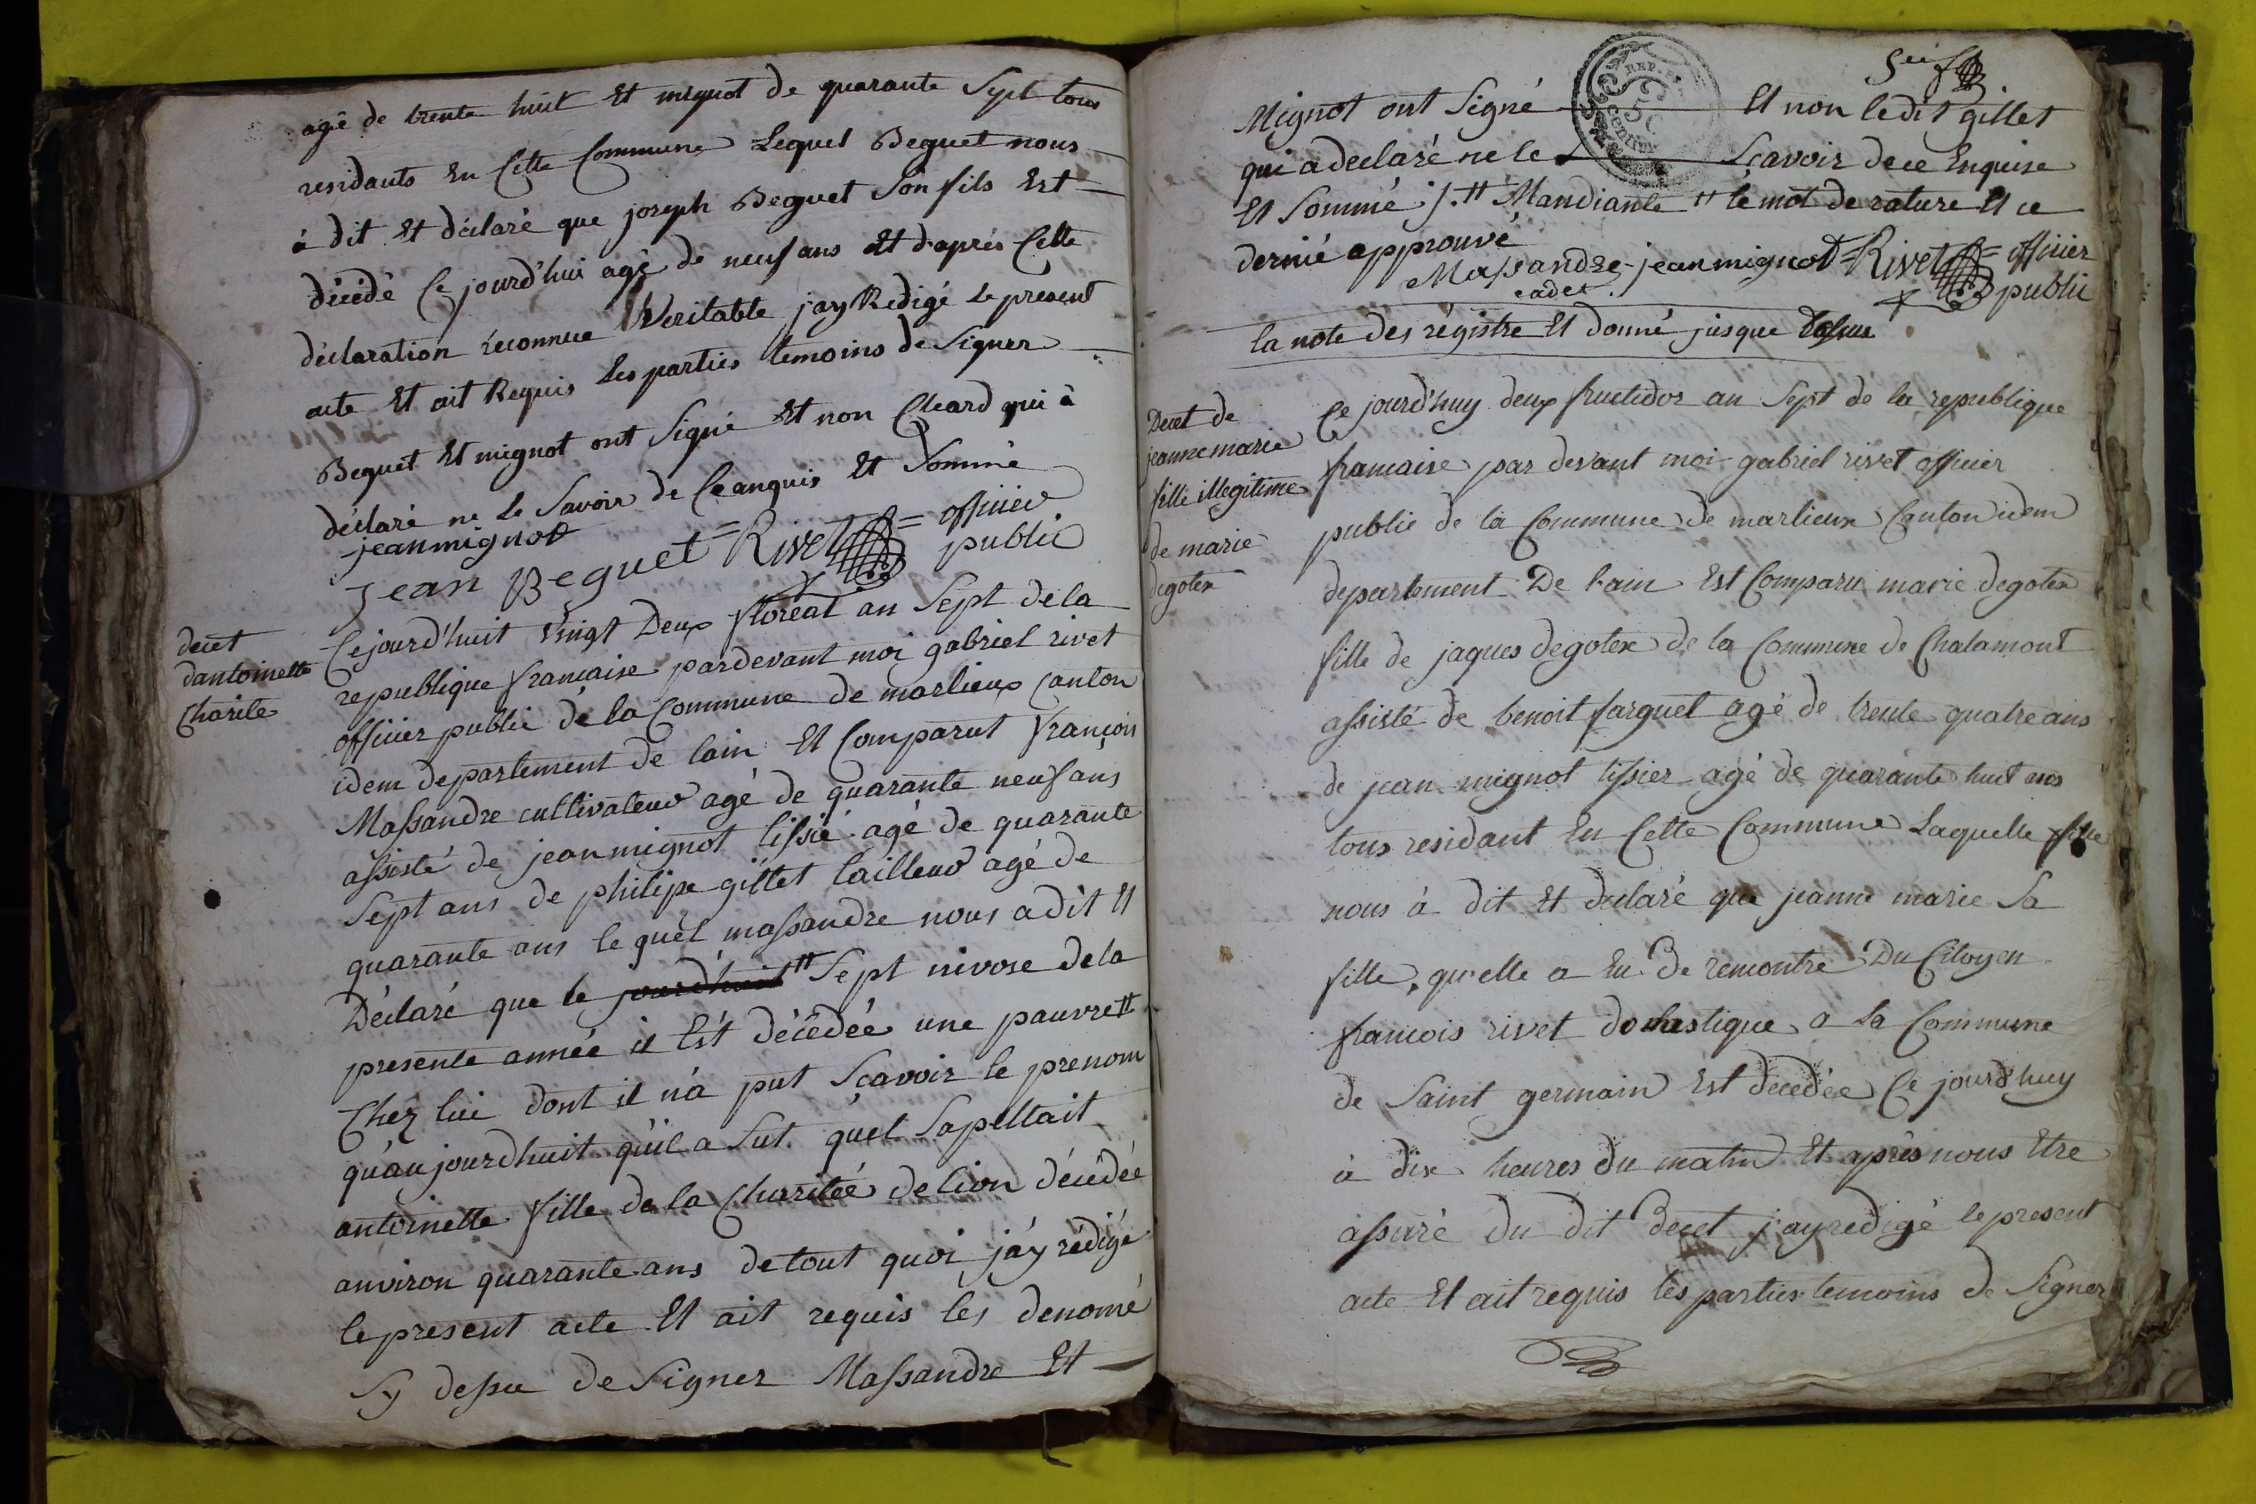 agé de trente huit Et mignot de quarante Sept tous
residants En Cette Commune Lequel Beguet nous
à dit Et déclaré que joseph Beguet Son fils Est
décédé Ce jourd'hui agé de neuf ans Et d'aprés Cette
déclaration réconnue Veritable jay Redigé le present
acte Et ait Requis Les parties temoins de Signer
Beguet Et mignot ont Signé Et non Cleard qui à
déclaré ne Le Savoir de Ce anquis Et Sommé
jean mignot
Jean Beguet = Rivet = officier
public
decet
dantoinette
Charite
Ce jourd'huit vingt Deux floréal an Sept de la
republique francaise pardevant moi gabriel rivet
officier public de la Commune de marlieux Canton
idem departement de lain Et Comparut françois
Massandre cultivateur agé de quarante neuf ans
assisté de jean mignot tissié agé de quarante
Sept ans de philipe gillet tailleur agé de
quarante ans le quel massandre nous a dit Et
Déclaré que le jourd'huit " Sept nivose de la
presente année il Est décédée une pauvre "
Chez lui dont il n'a put Sçavoir le prenom
qu'aujourdhuit qu'il a Sut quel Sapellait
antoinette fille de la Charitée de lion décédée
anviron quarante ans de tout quoi j'ay rédigé
le present acte Et ait requis les denomé
Sy dessu de Signer Massandre Et
REP. F
50
Cent
Mignot ont Signé Et non ledit gillet
qui a declaré ne le Sçavoir de ce Enquise
Et Sommé /. " Mandiante " le mot de rature Et ce
dernié approuvé
Massandre jean mignot = Rivet = officier
cadet public
la note des régistre Et donné jusque
Decet de
jeanne marie
fille illegitime
de marie
degotex
Ce jourd'huy deux fructidor an Sept de la republique
francaise par devant moi gabriel rivet officier
public de la Commune de marlieux Canton idem
departement De l'ain Est Comparu marie degotex
fille de jaques degotex de la Commune de Chalamont
assisté de benoit farguet agé de trente quatre ans
de jean mignot tissier agé de quarante huit ans
tous residant En Cette Commune Laquelle fille
nous à dit Et declaré que jeanne marie Sa
fille, qu'elle a Eu de remontre Du Citoyen
francois rivet domestique a La Commune
de Saint germain Est decedée Ce jourd'huy
à dix heures du matin Et aprés nous Etre
assuré du dit Decet j'ay redigé le present
acte Et ait requis les parties temoins de Signer